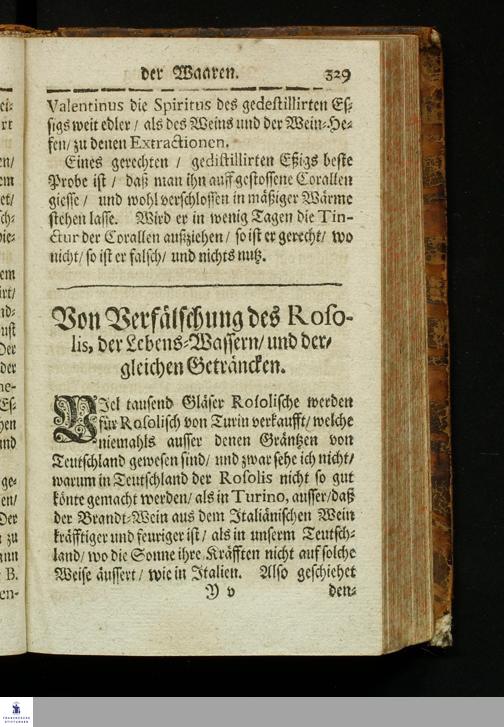 der Waaren. 329
Valentinus die Spiritus des gedestillirten Es-
sigs weit edler / als des Weins und der Wein-He-
fen / zu denen Extractionen.
Eines gerechten / gedistillirten Eßigs beste
Probe ist / daß man ihn auff gestossene Corallen
giesse / und wohl verschlossen in mäßiger Wärme
stehen lasse. Wird er in wenig Tagen die Tin-
ctur der Corallen außziehen / so ist er gerecht / wo
nicht / so ist er falsch / und nichts nutz.
Von Verfälschung des Roso-
lis, der Lebens-Wassern / und der-
gleichen Geträncken.
VIel tausend Gläser Rosolische werden
für Rosolisch von Turin verkaufft / welche
niemahls ausser denen Gräntzen von
Teutschland gewesen sind / und zwar sehe ich nicht /
warum in Teutschland der Rosolis nicht so gut
könte gemacht werden / als in Turino, ausser / daß
der Brandt-Wein aus dem Italiänischen Wein
kräfftiger und feuriger ist / als in unserm Teutsch-
land / wo die Sonne ihre Kräfften nicht auf solche
Weise äussert / wie in Italien. Also geschiehet
Y v den-